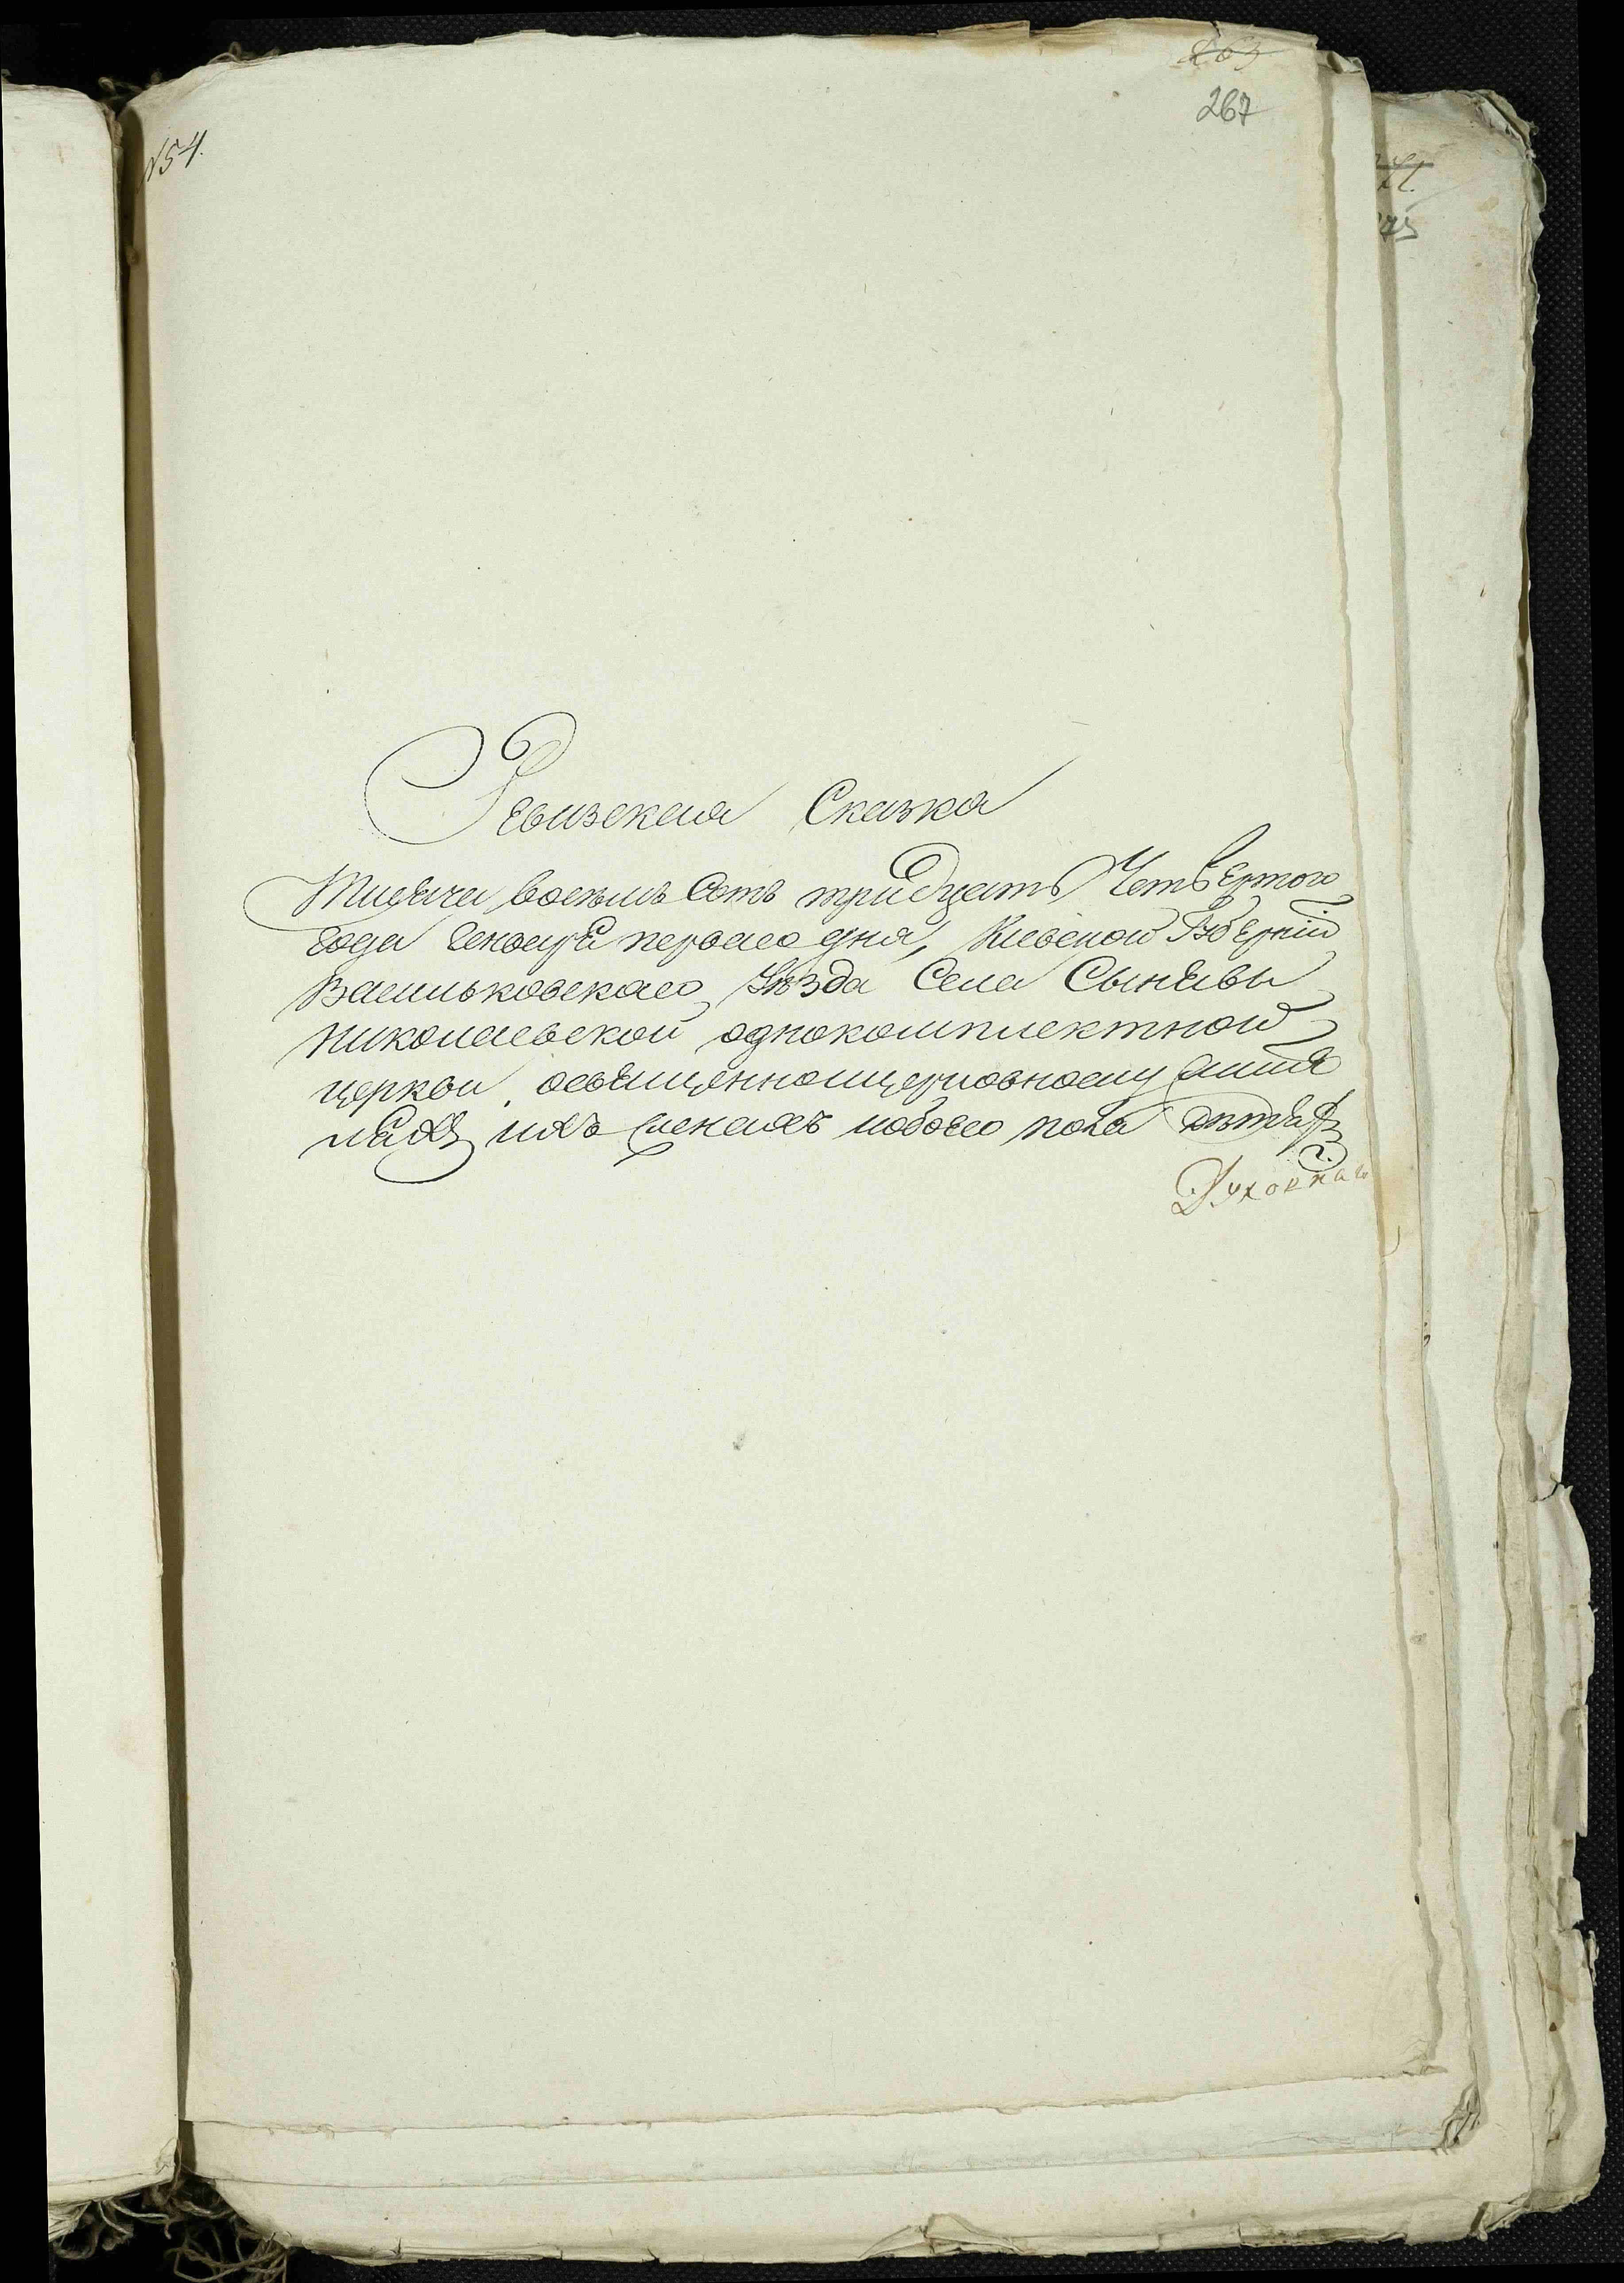 263
267
N54.
Ревизская Сказка
Тысяча восемь сотъ тридцать Четвертого
Года Генваря перваго дня, Киевской Губерніи
Васильковскаго Уѣзда Села Сынявы
Николаевской однокомплектной
церкви, освященноцерковнослу жите
ляхъ ихъ женахъ иобоего пола дѣтяхъ
Духовнаго